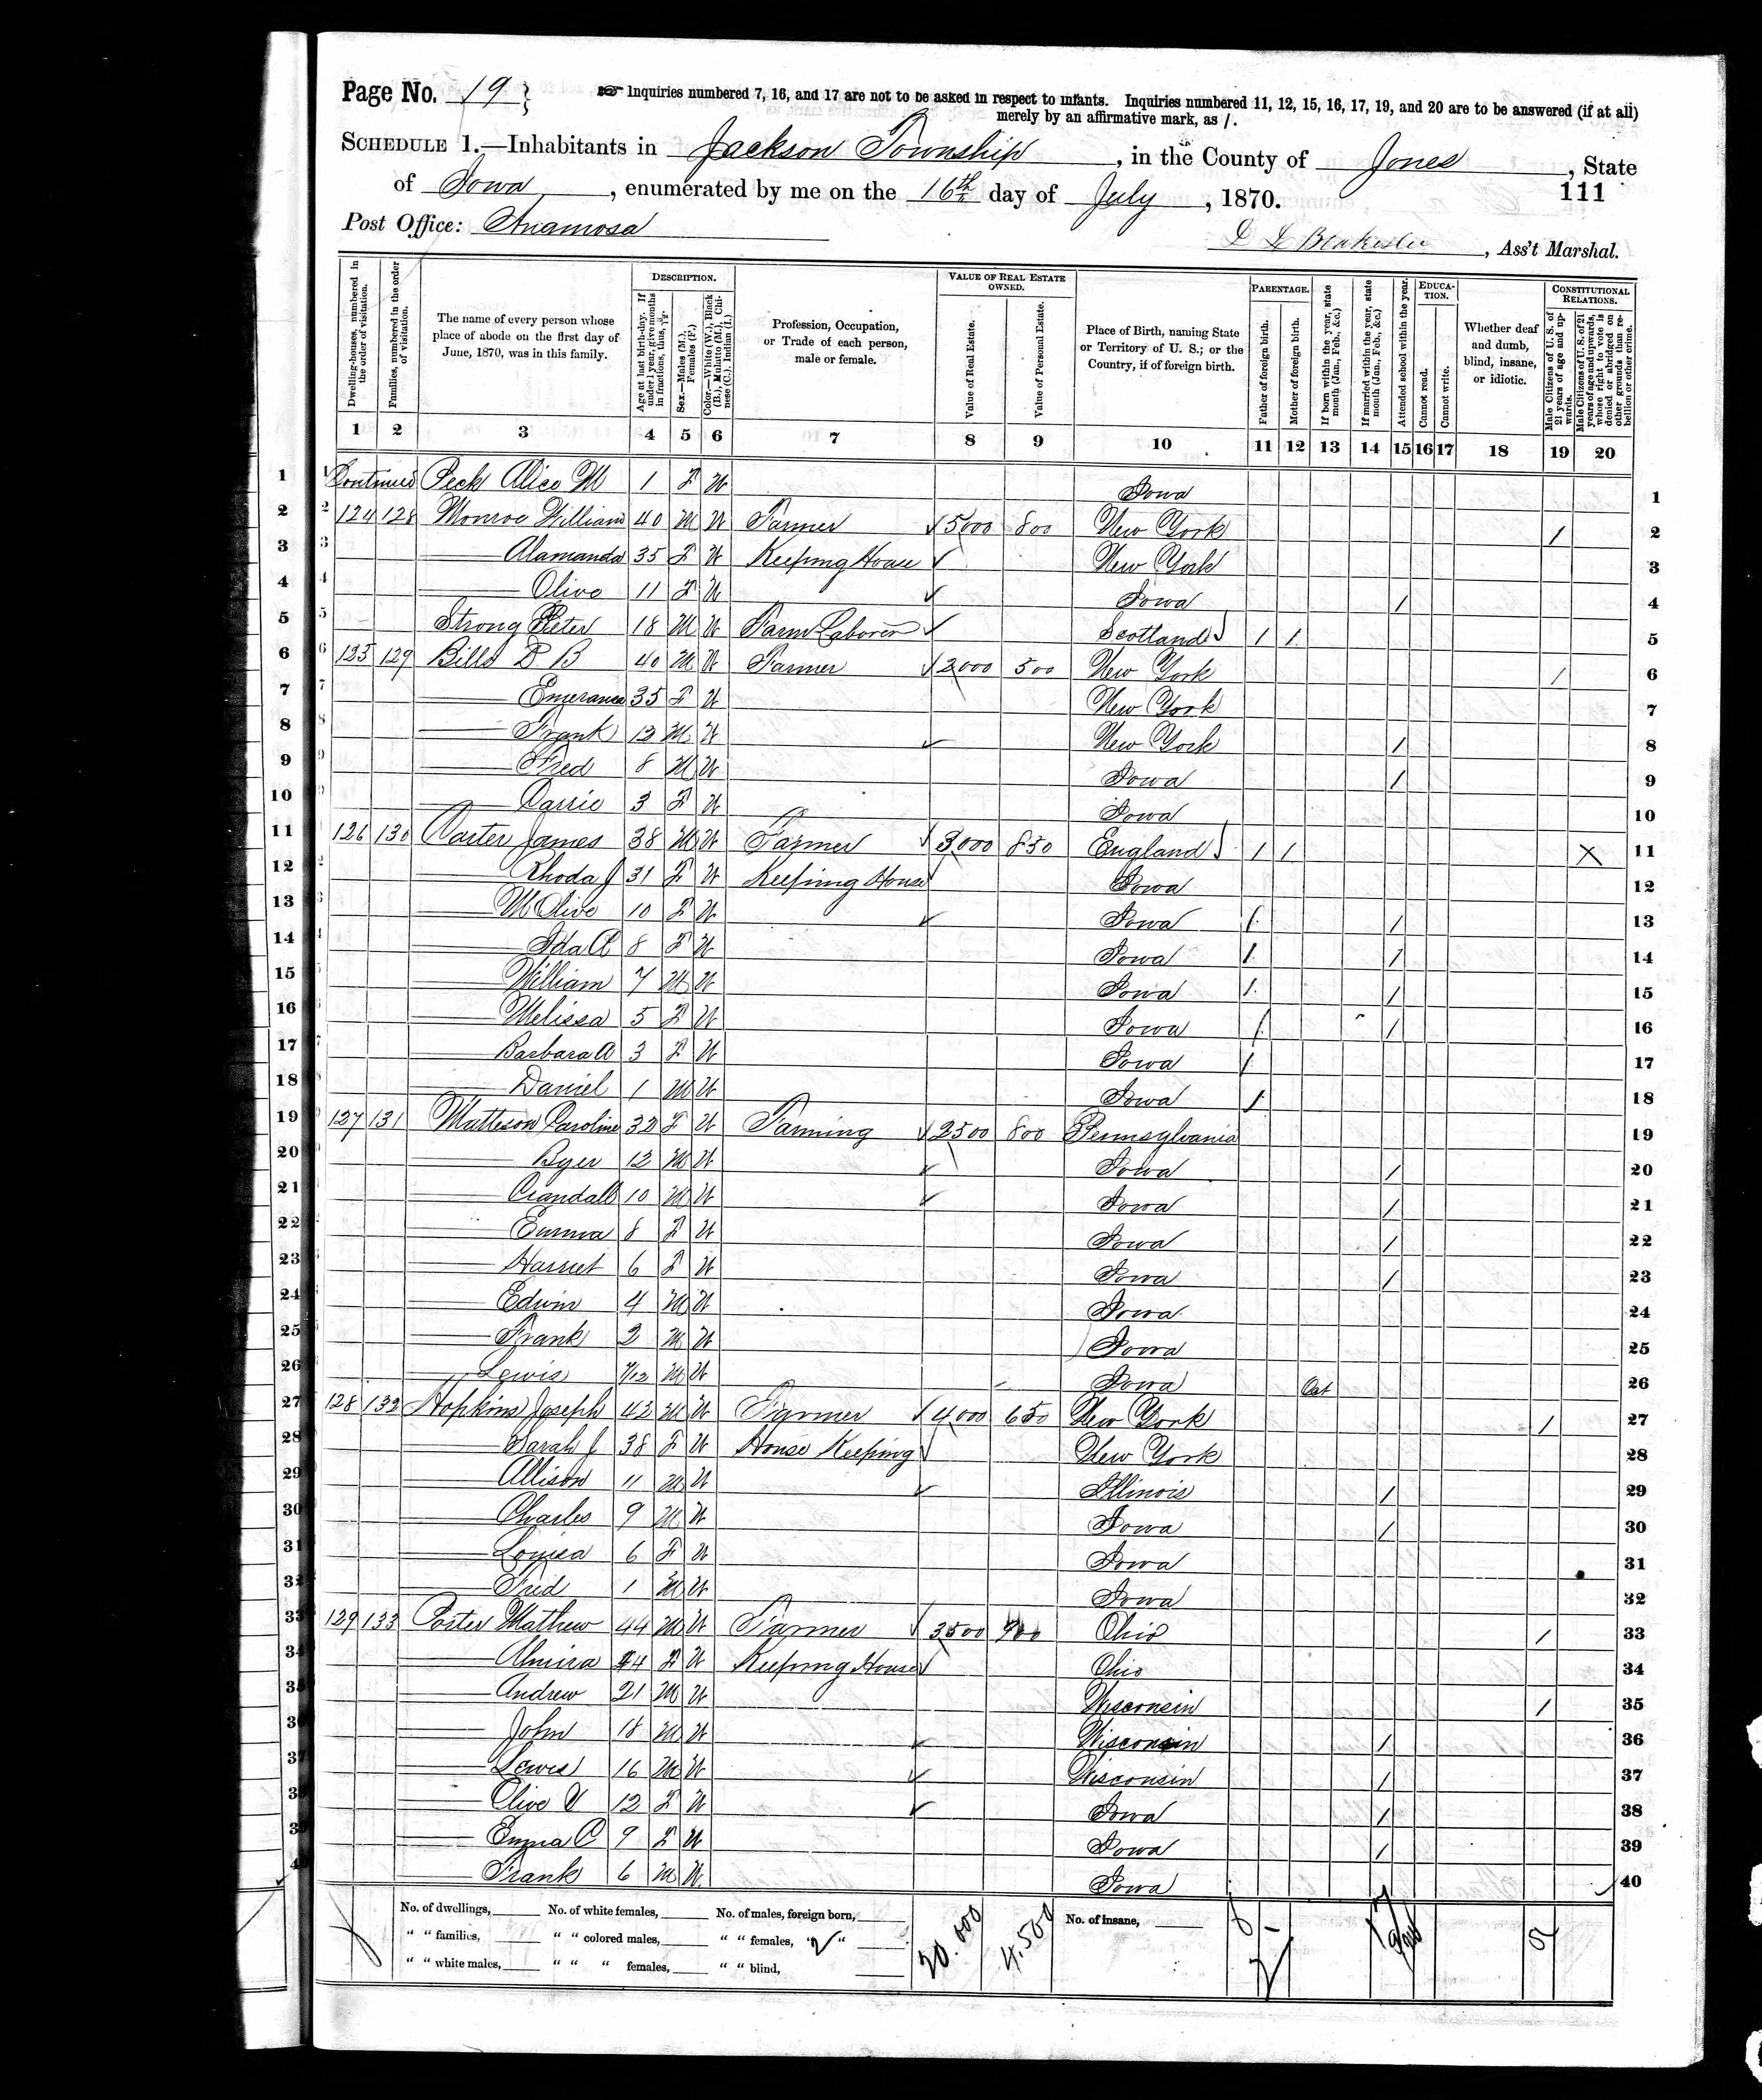 Page No. 19
Inquiries numbered 7, 16, and 17 are not to be asked in respect to infants. Inquiries numbered 11, 12, 15, 16, 17, 19, and 20 are to be answered (if at all)
merely by an affirmative mark, as /.
SCHEDULE 1.—Inhabitants in Jackson Township, in the County of Jones, State
of Iowa, enumerated by me on the 16th day of July, 1870.
111
Post Office: Anamosa
Ass't Marshal.
Dwelling-houses, numbered in the order of visitation.
Families, numbered in the order of visitation.
The name of every person whose place of abode on the first day of June, 1870, was in this family.
DESCRIPTION.
Age at last birth-day. If under 1 year, give months in fractions, thus, 3/12.
Sex.—Males (M.), Females (F.)
Color.—White (W.), Black (B.), Mulatto (M.), Chinese (C.), Indian (I.)
Profession, Occupation, or Trade of each person, male or female.
VALUE OF REAL ESTATE OWNED.
Value of Real Estate.
Value of Personal Estate.
Place of Birth, naming State or Territory of U. S.; or the Country, if of foreign birth.
PARENTAGE.
Father of foreign birth.
Mother of foreign birth.
If born within the year, state month (Jan., Feb., &c.)
If married within the year, state month (Jan., Feb., &c.)
Attended school within the year.
EDUCATION.
Cannot read.
Cannot write.
Whether deaf and dumb, blind, insane, or idiotic.
CONSTITUTIONAL RELATIONS.
Male Citizens of U. S. of 21 years of age and upwards.
Male Citizens of U. S. of 21 years of age and upwards, whose right to vote is denied or abridged on other grounds than rebellion or other crime.
1 2 3 4 5 6 7 8 9 10 11 12 13 14 15 16 17 18 19 20
1 Continued Peck Alice M 1 F W Iowa 1
2 124 128 Monroe William 40 M W Farmer 5000 800 New York / 2
3 Alamanda 35 F W Keeping House New York 3
4 Olive 11 F W Iowa / 4
5 Strong Peter 18 M W Farm Laborer Scotland / / 5
6 125 129 Bills P B 40 M W Farmer 2000 500 New York / 6
7 35 F W New York 7
8 Frank 13 M W New York / 8
9 Fred 8 M W Iowa / 9
10 Carrie 3 F W Iowa 10
11 126 130 Carter James 38 M W Farmer 3000 850 England / / X 11
12 Rhoda J 31 F W Keeping House Iowa 12
13 M Olive 10 F W Iowa / / 13
14 Ida A 8 F W Iowa / / 14
15 William 7 M W Iowa / / 15
16 Melissa 5 F W Iowa / / 16
17 Barbara A 3 F W Iowa / 17
18 Daniel 1 M W Iowa / 18
19 127 131 Matteson Caroline 32 F W Farming 2500 800 Pennsylvania 19
20 Byer 12 M W Iowa / 20
21 Crandall 10 M W Iowa / 21
22 Emma 8 F W Iowa / 22
23 Harriet 6 F W Iowa / 23
24 Edwin 4 M W Iowa 24
25 Frank 2 M W Iowa 25
26 Lewis M W Iowa Oct 26
27 128 132 Hopkins Joseph 42 M W Farmer 4000 650 New York / 27
28 Sarah J 38 F W House Keeping New York 28
29 Allison 11 M W Illinois / 29
30 Charles 9 M W Iowa / 30
31 Louisa 6 F W Iowa 31
32 Fred 1 M W Iowa 32
33 129 133 Porter Mathew 44 M W Farmer 3500 900 Ohio / 33
34 Almira 44 F W Keeping House Ohio 34
35 Andrew 21 M W Wisconsin / 35
36 John 18 M W Wisconsin / 36
37 Lewis 16 M W Wisconsin / 37
38 Olive V 12 F W Iowa / 38
39 Emma C 9 F W Iowa / 39
40 Frank 6 M W Iowa 40
No. of dwellings, No. of white females, No. of males, foreign born, 20.000 4.500 No. of insane,
" " families, " " colored males, " " females, " "
" " white males, " " " females, " " blind,